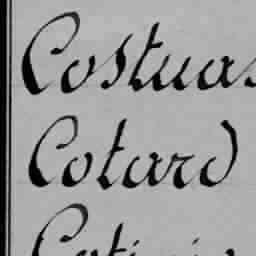 Costuas
Cotard